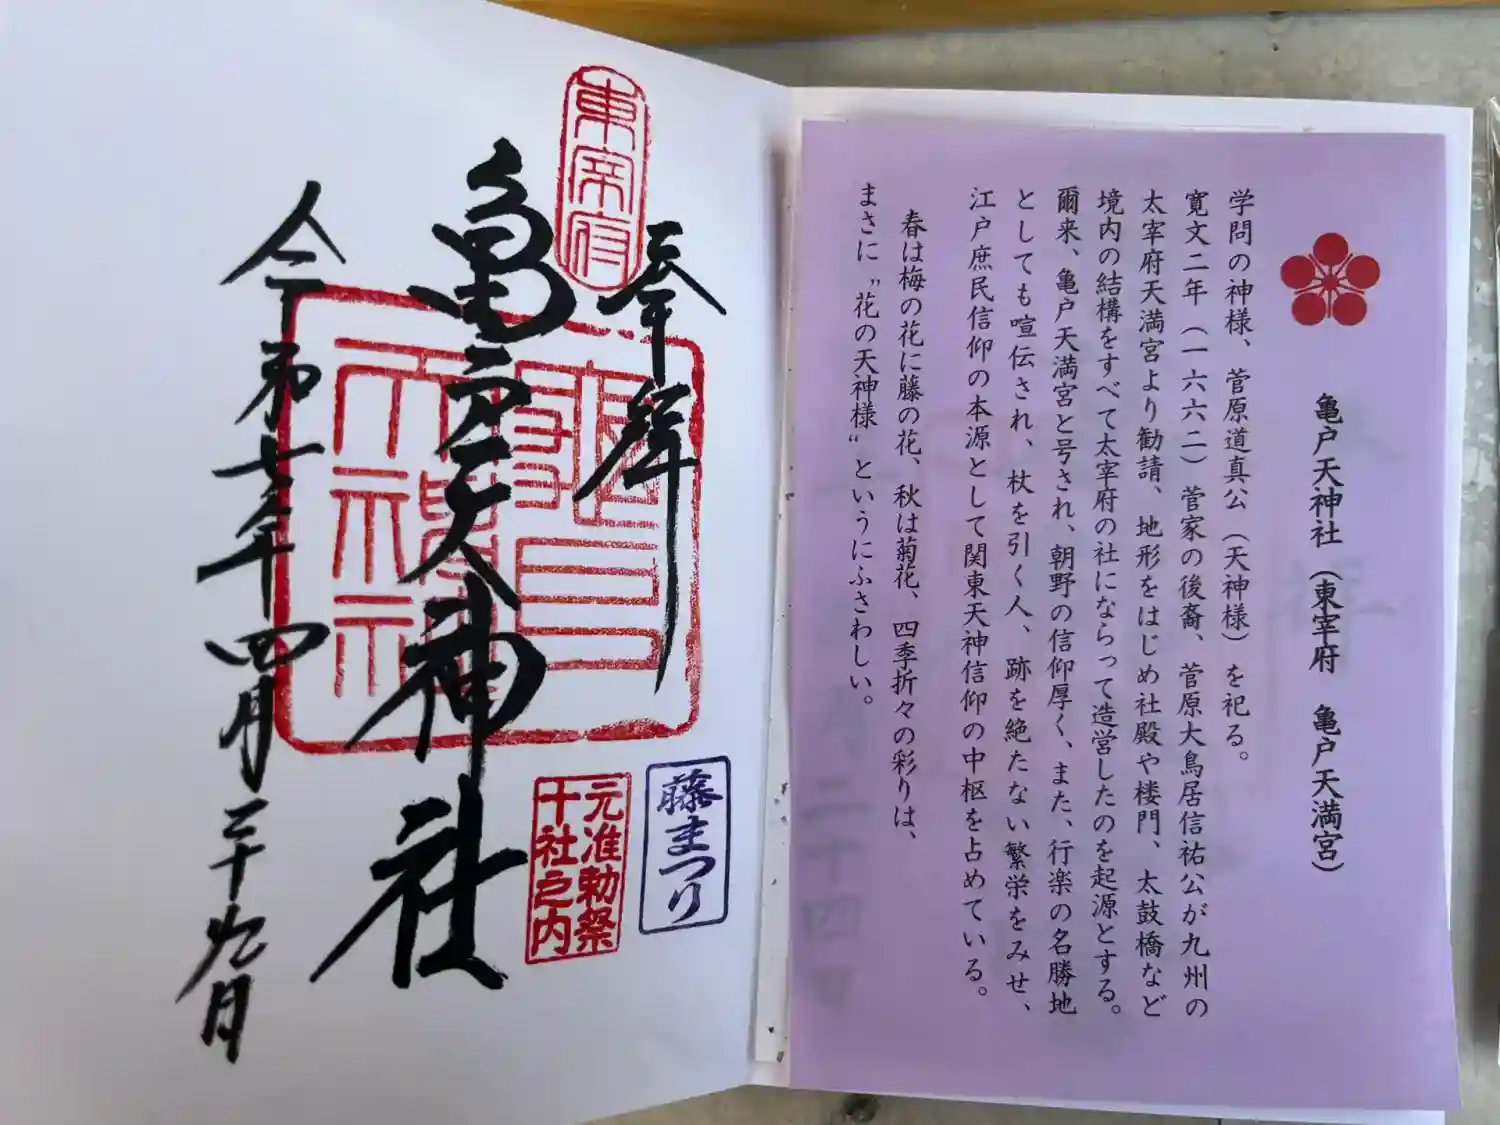 亀戸天神社（東宰府　亀戸天満宮）
学問の神様、菅原道真公（天神様）を祀る。
寛文二年（一六六二）菅家の後裔、菅原大鳥居信祐公が九州の
太宰府天満宮より勧請、地形をはじめ社殿や楼門、太鼓橋など
境内の結構をすべて太宰府の社にならって造営したのを起源とする。
爾来、亀戸天満宮と号され、朝野の信仰厚く、また、行楽の名勝地
としても喧伝され、杖を引く人、跡を絶たない繁栄をみせ、
江戸庶民信仰の本源として関東天神信仰の中枢を占めている。
春は梅の花に藤の花、秋は菊花、四季折々の彩りは、
まさに〝花の天神様〟というにふさわしい。
奉拝
東宰府
藤まつり
元准勅祭
十社之内
亀戸天神社
令和七年四月二十九日